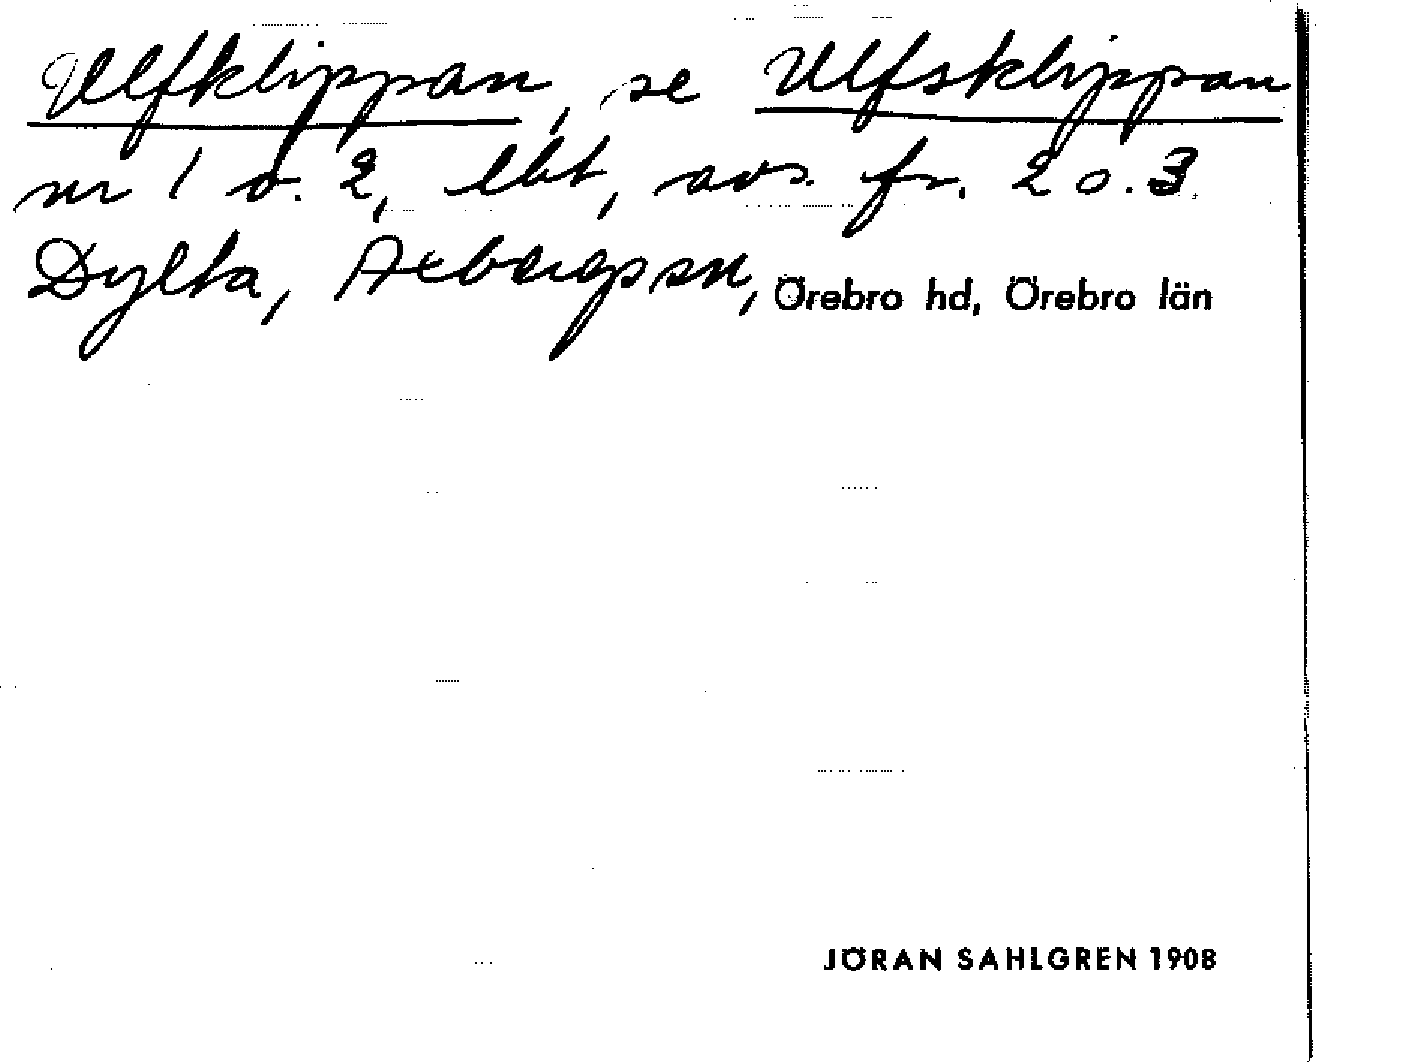 Ulfklippan, se Ulfsklippan
nr 1 o. 2, lht, avs. fr. 2 o. 3
Dylta, Axbergs sn, Örebro hd, Örebro län
JÖRAN SAHLGREN 1908